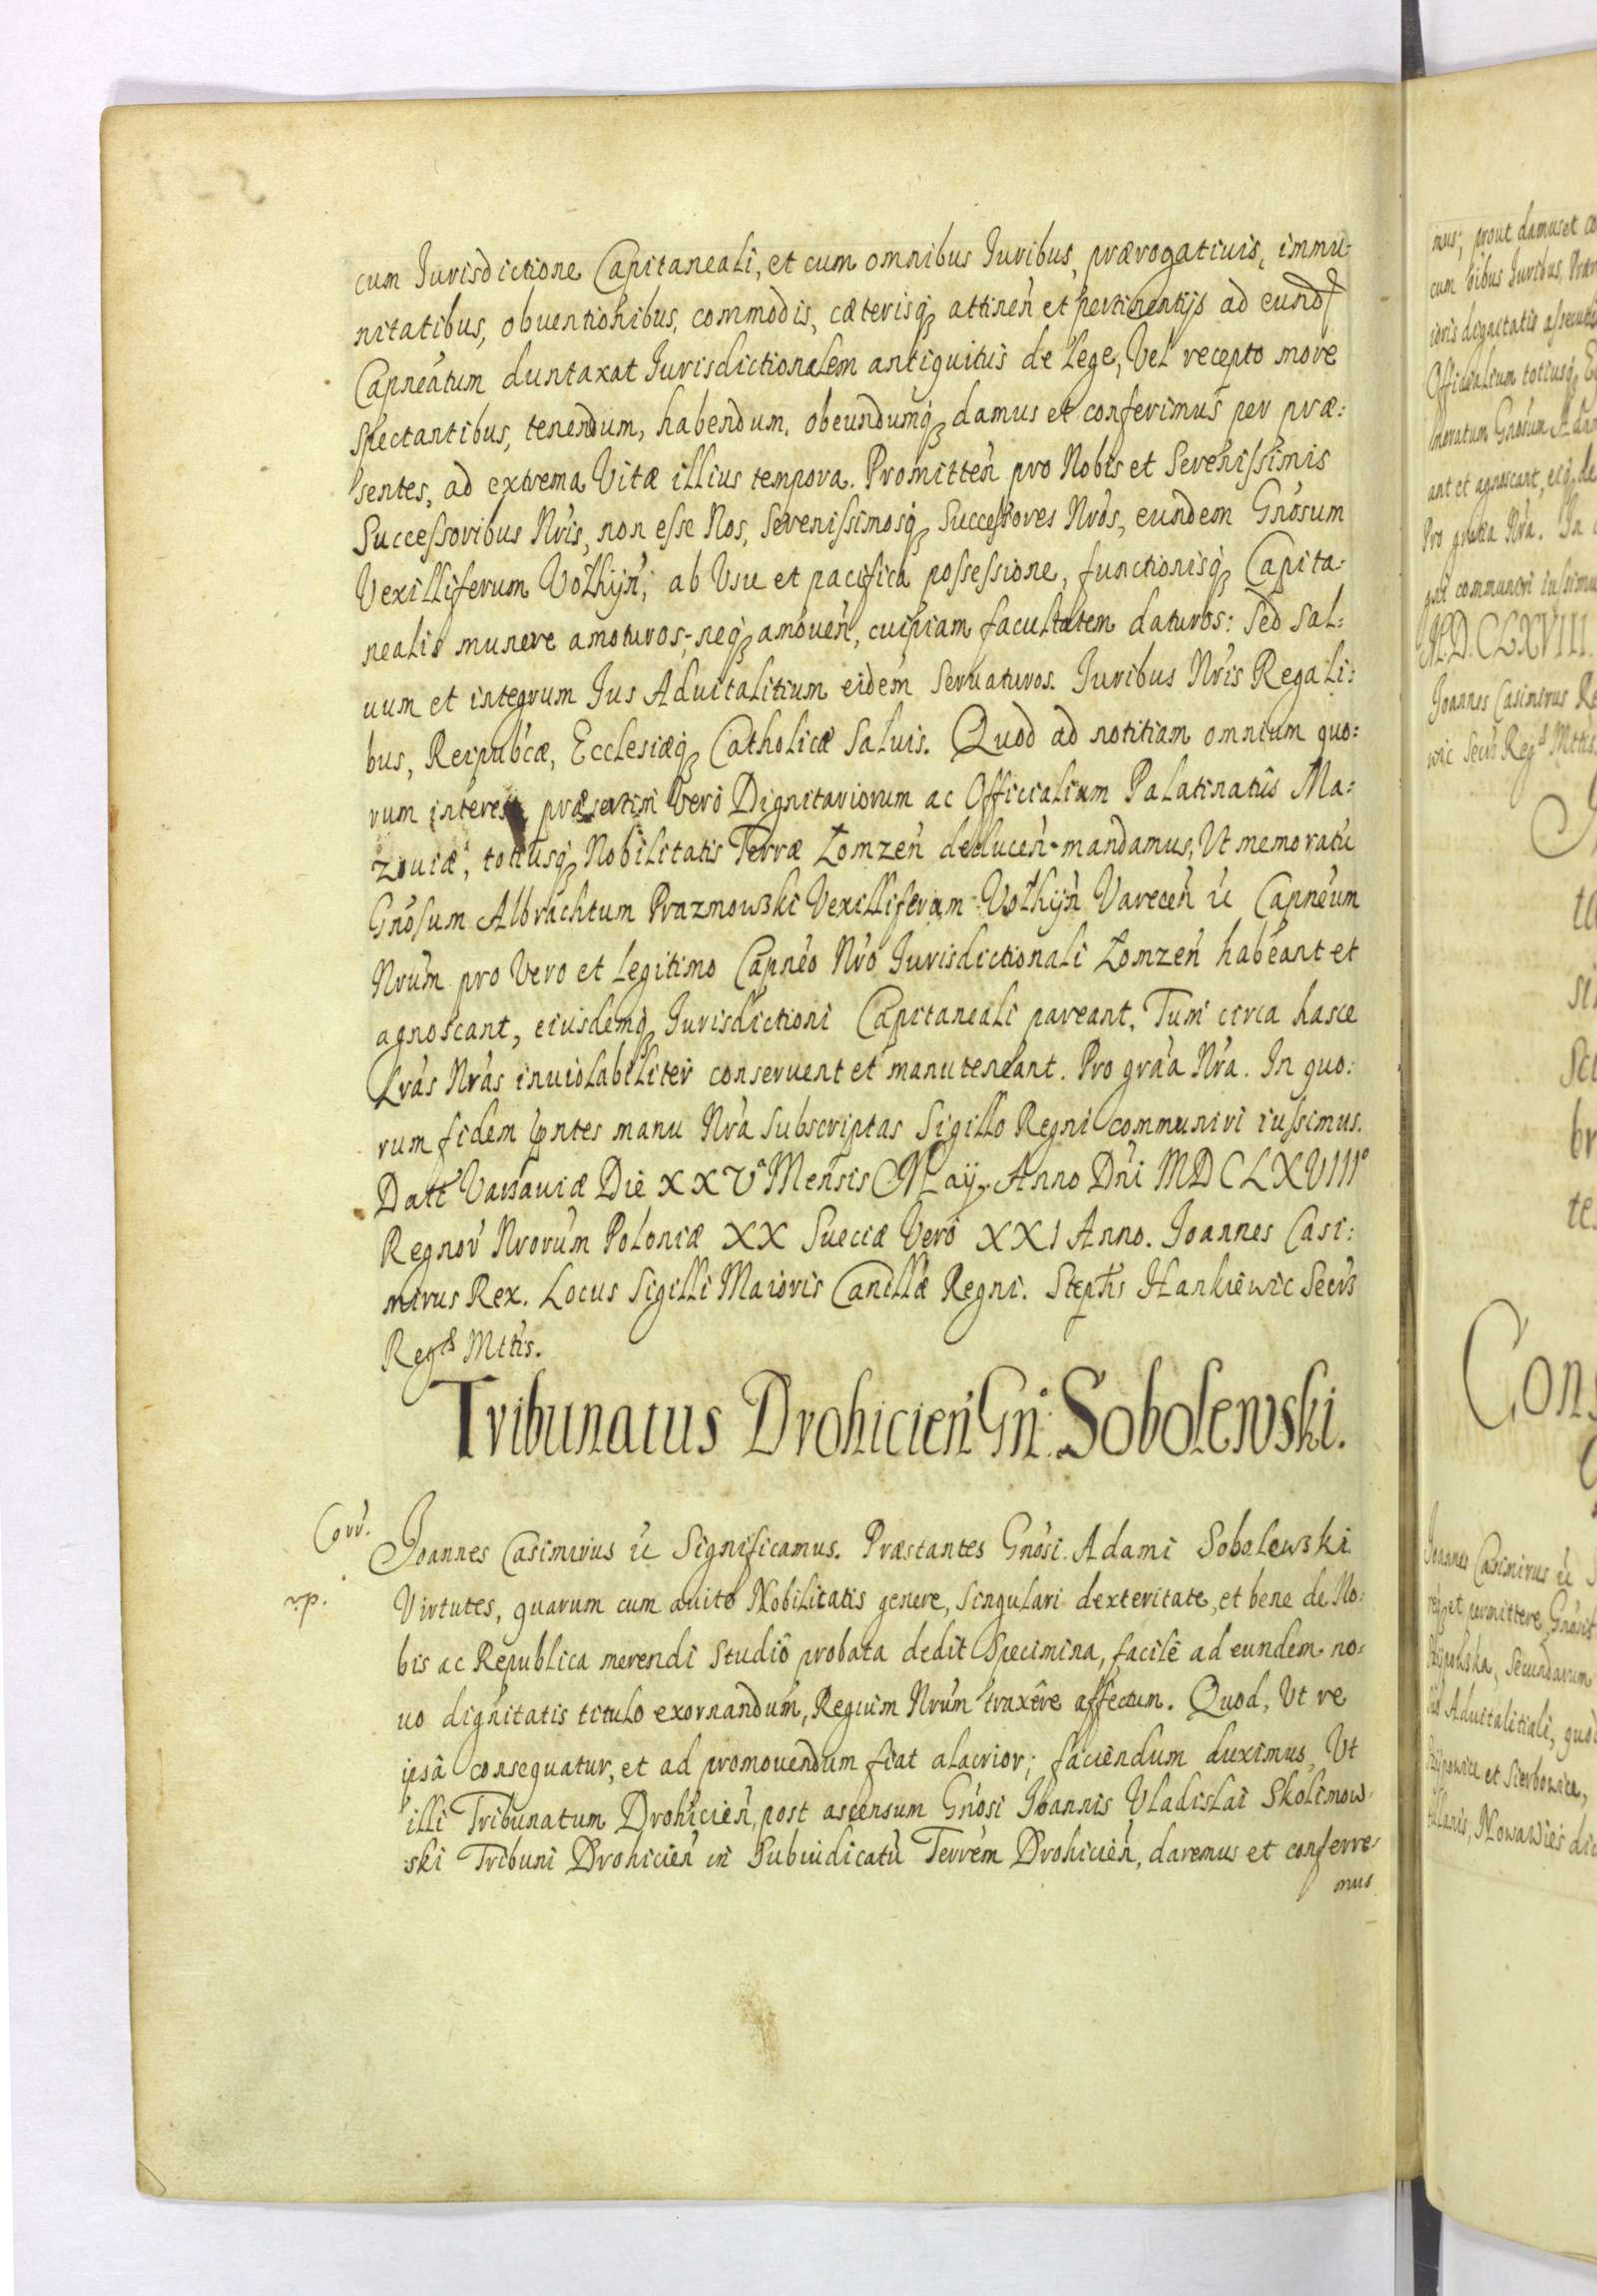 cum Jurisdictione Capitaneali, et cum omnibus Juribus, prærogatiuis, immu:
nitatibus, obuentionibus, commodis, cæterisq3 attineñ et pertinentijs ad eund
Capneatum duntaxat Jurisdictionalem antiquitus de Lege, Vel recepto more
spectantibus, tenendum, habendum, obeundumq3 damus et conferimus per præ:
sentes, ad extrema Vitæ illius tempora. Promitteñ pro Nobis et Serenissimis
Successoribus Nris, non esse Nos, Serenissimosq3 Successores Nros, eundem Gnosum
Vexilliferum Wolhyñ, ab Vsu et pacifica possessione, functionisq3 Capita:
nealis munere amoturos, neq3 amoueñ, cuipiam facultatem daturos: Sed Sal:
uum et integrum Jus Aduitalitium eidem Seruaturos. Juribus Nris Regali:
bus, Reipubcæ, Ecclesiæq3 Catholicæ Saluis. Quod ad notitiam omnium quo:
rum interest, præsertim Vero Dignitariorum ac Officialium Palatinatûs Ma:
zouiæ, totiusq3 Nobilitatis Terræ Łomzeñ deduceñ mandamus, Vt memoratũ
Gnosum Albrachtum Prazmowski Vexilliferum Wolhyñ Vareceñ &c Capneum
Nrum pro Vero et Legitimo Capneo Nro Jurisdictionali Łomzeñ habeant et
agnoscant, eiusdemq3 Jurisdictioni Capitaneali pareant, Tum circa hasce
Lras Nras inuiolabiliter conseruent et manuteneant. Pro graa Nra. In quo:
rum fidem pntes manu Nra Subscriptas Sigillo Regni communiri iussimus.
Datt Varsauiæ Die XXVa Mensis Maÿ. Anno Dni MDCLXVIIIo
Regnor Nrorum Poloniæ XX Sueciæ Vero XXI Anno. Joannes Casi:
mirus Rex. Locus Sigilli Maioris Cancillæ Regni. Stephs Hankiewic Secrs
Regs Mttis.
Tribunatus Drohicieñ Gñi Sobolewski.
Corr.
Joannes Casimirus &c Significamus. Præstantes Gnosi Adami Sobolewski
Virtutes, quarum cum auito Nobilitatis genere, Singulari dexteritate, et bene de No:
bis ac Republica merendi Studiô probata dedit Specimina, facilè ad eundem no:
uo dignitatis titulo exornandum, Regium Nrum traxêre affectum. Quod, Vt re
ipsâ consequatur, et ad promouendum fiat alacrior; faciendum duximus, Vt
illi Tribunatum Drohicieñ, post ascensum Gnosi Joannis Vladislai Skolimow:
ski Tribuni Drohicieñ in Subiudicatũ Terrem Drohicieñ, daremus et conferre:
mus
mus; prout damus et
cum
Officialium totiusq3
ant et agnoscant, eiq3 de
Pro gratia Nra. In
M.D.CLXVIII.
Joannes Casimirus Re
wic Secrs Regs Mttis
Cons
Joannes Casimirus &c
Aduitalitiali, quod